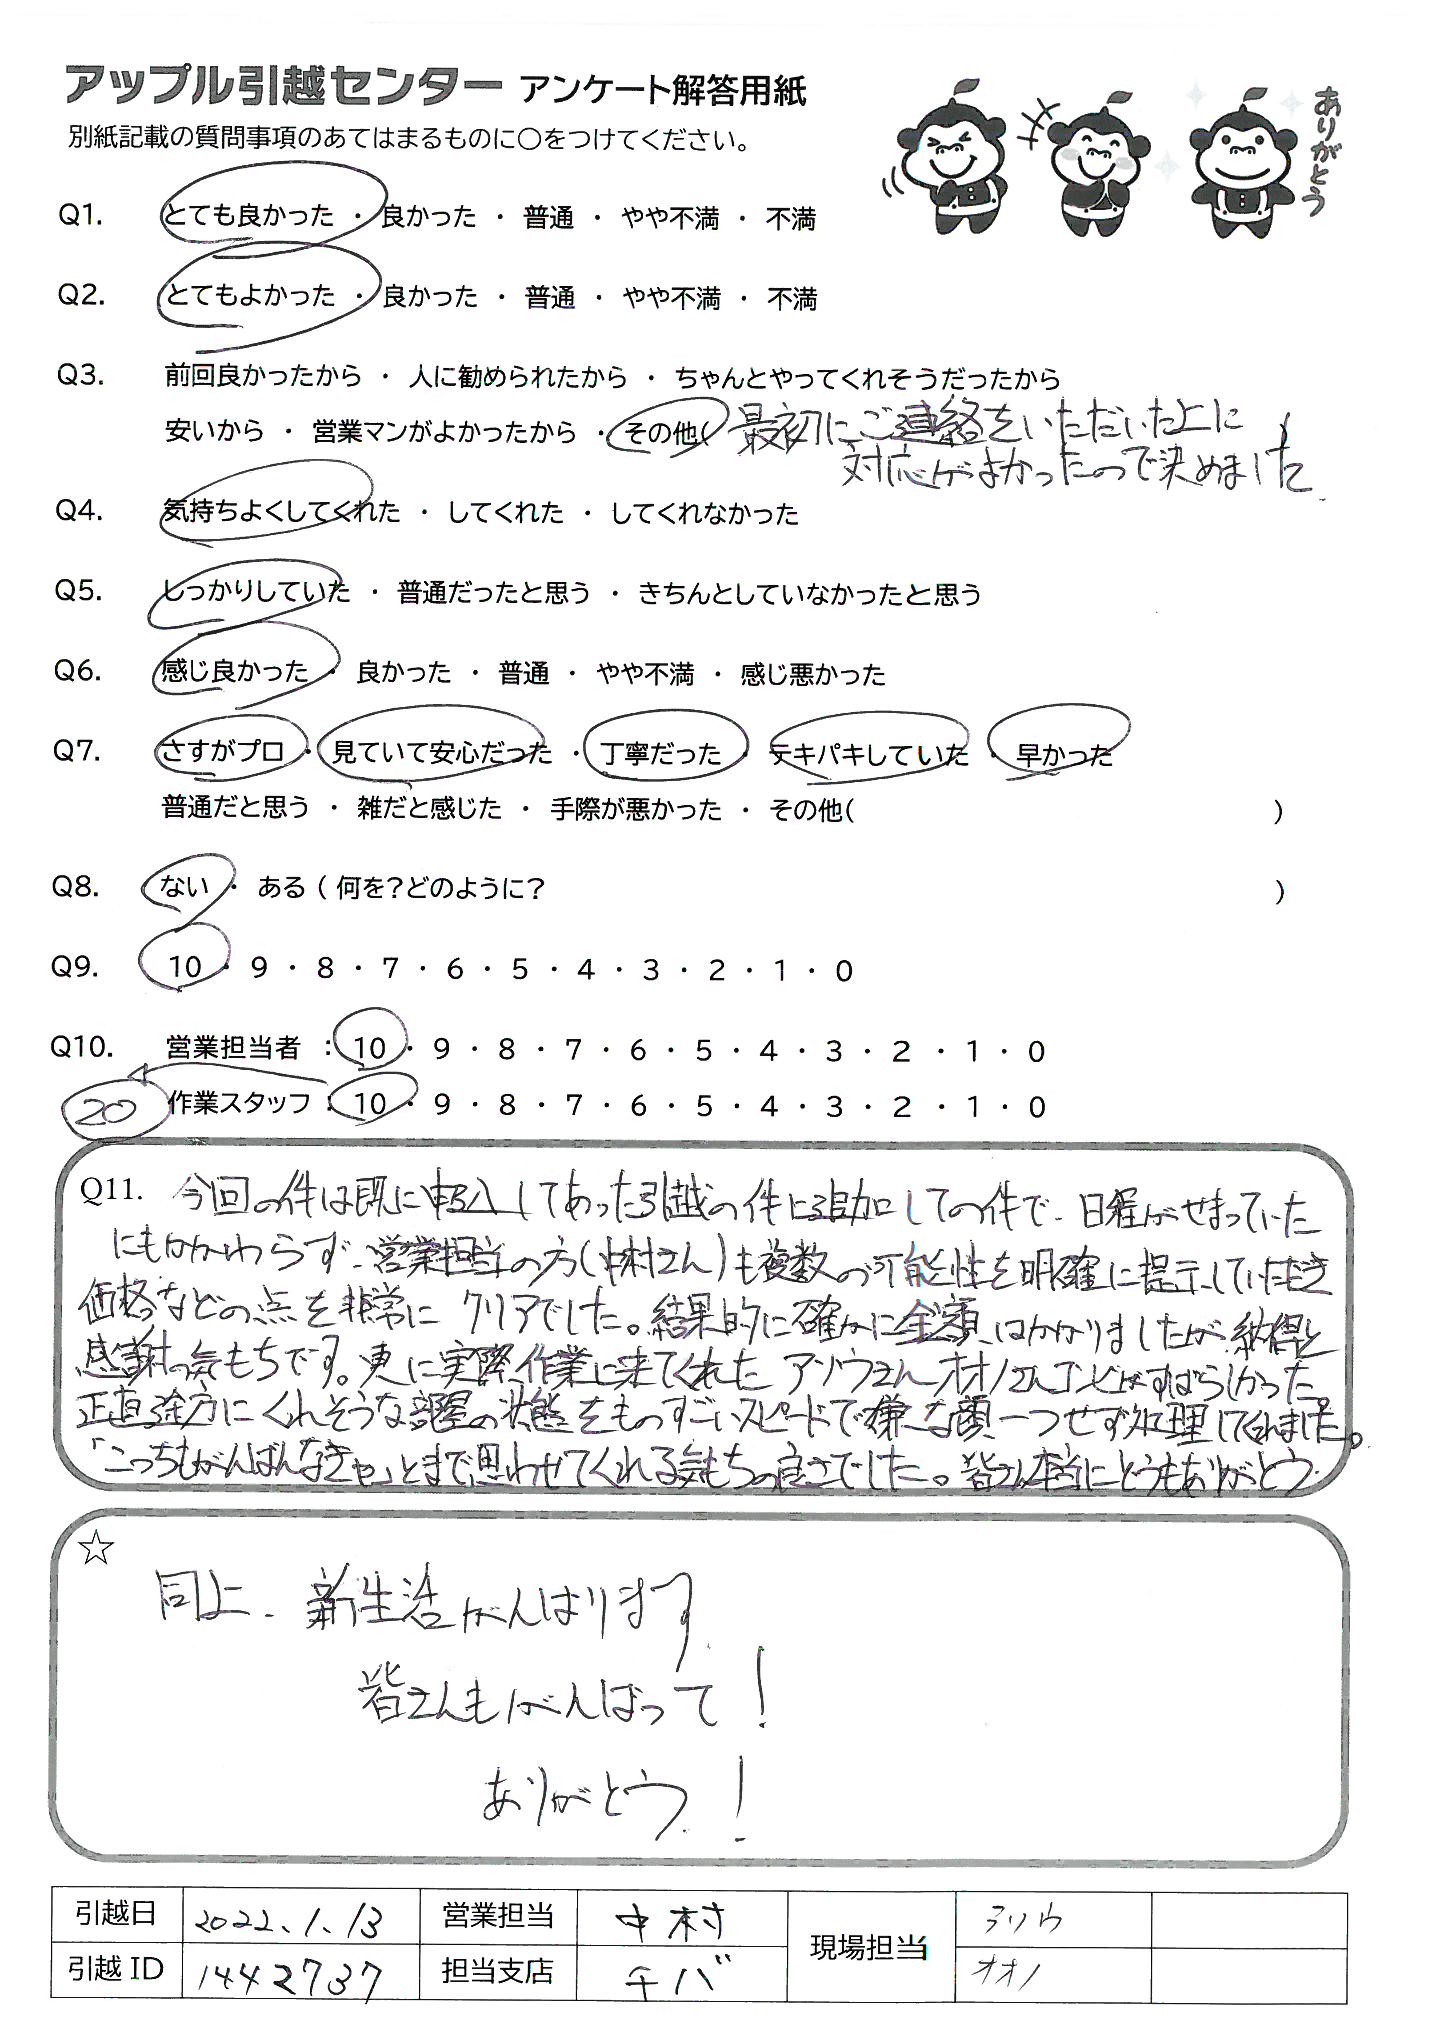 アップル引越センター アンケート解答用紙
ありがとう
別紙記載の質問事項のあてはまるものに〇をつけてください。
Q1. とても良かった ・ 良かった ・ 普通 ・ やや不満 ・ 不満
Q2. とてもよかった ・ 良かった ・ 普通 ・ やや不満 ・ 不満
Q3. 前回良かったから ・ 人に勧められたから ・ ちゃんとやってくれそうだったから
安いから ・ 営業マンがよかったから ・ その他( 最初にご連絡をいただいた上に )
対応がよかったので決めました
Q4. 気持ちよくしてくれた ・ してくれた ・ してくれなかった
Q5. しっかりしていた ・ 普通だったと思う ・ きちんとしていなかったと思う
Q6. 感じ良かった ・ 良かった ・ 普通 ・ やや不満 ・ 感じ悪かった
Q7. さすがプロ ・ 見ていて安心だった ・ 丁寧だった ・ テキパキしていた ・ 早かった
普通だと思う ・ 雑だと感じた ・ 手際が悪かった ・ その他( )
Q8. ない ・ ある ( 何を?どのように? )
Q9. 10 ・ 9 ・ 8 ・ 7 ・ 6 ・ 5 ・ 4 ・ 3 ・ 2 ・ 1 ・ 0
Q10. 営業担当者 : 10 ・ 9 ・ 8 ・ 7 ・ 6 ・ 5 ・ 4 ・ 3 ・ 2 ・ 1 ・ 0
20 作業スタッフ : 10 ・ 9 ・ 8 ・ 7 ・ 6 ・ 5 ・ 4 ・ 3 ・ 2 ・ 1 ・ 0
Q11. 今回の件は既に申込してあった引越の件に追加しての件で、日程がせまっていた
にもかかわらず、営業担当の方(中村さん)も複数の可能性を明確に提示していただき
価格などの点を非常にクリアでした。結果的に確かに金額はかかりましたが、納得と
感謝の気もちです。更に実際、作業に来てくれたアソウさん、オオノさんコンビがすばらしかった。
正直途方にくれそうな部屋の状態をものすごいスピードで嫌な顔一つせず処理してくれました。
「こっちもがんばんなきゃ」とまで思わせてくれる気もちの良さでした。皆さん本当にどうもありがとう
☆
同上、新生活がんばります
皆さんもがんばって!
ありがとう!
引越日 2022.1.13 営業担当 中村 現場担当 アソウ
引越ID 1442737 担当支店 チバ オオノ